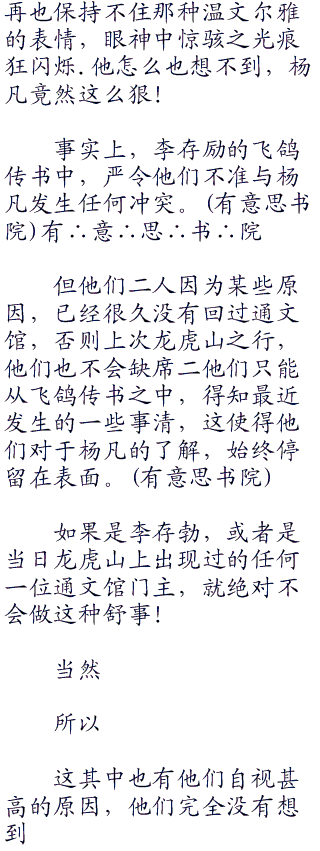 再也保持不住那种温文尔雅
的表情，眼神中惊骇之光痕
狂闪烁.他怎么也想不到，杨
凡竟然这么狠！
事实上，李存励的飞鸽
传书中，严令他们不准与杨
凡发生任何冲突。(有意思书
院)有∴意∴思∴书∴院
但他们二人因为某些原
因，已经很久没有回过通文
馆，否则上次龙虎山之行，
他们也不会缺席二他们只能
从飞鸽传书之中，得知最近
发生的一些事清，这使得他
们对于杨凡的了解，始终停
留在表面。(有意思书院)
如果是李存勃，或者是
当日龙虎山上出现过的任何
一位通文馆门主，就绝对不
会做这种舒事！
当然
所以
这其中也有他们自视甚
高的原因，他们完全没有想
到